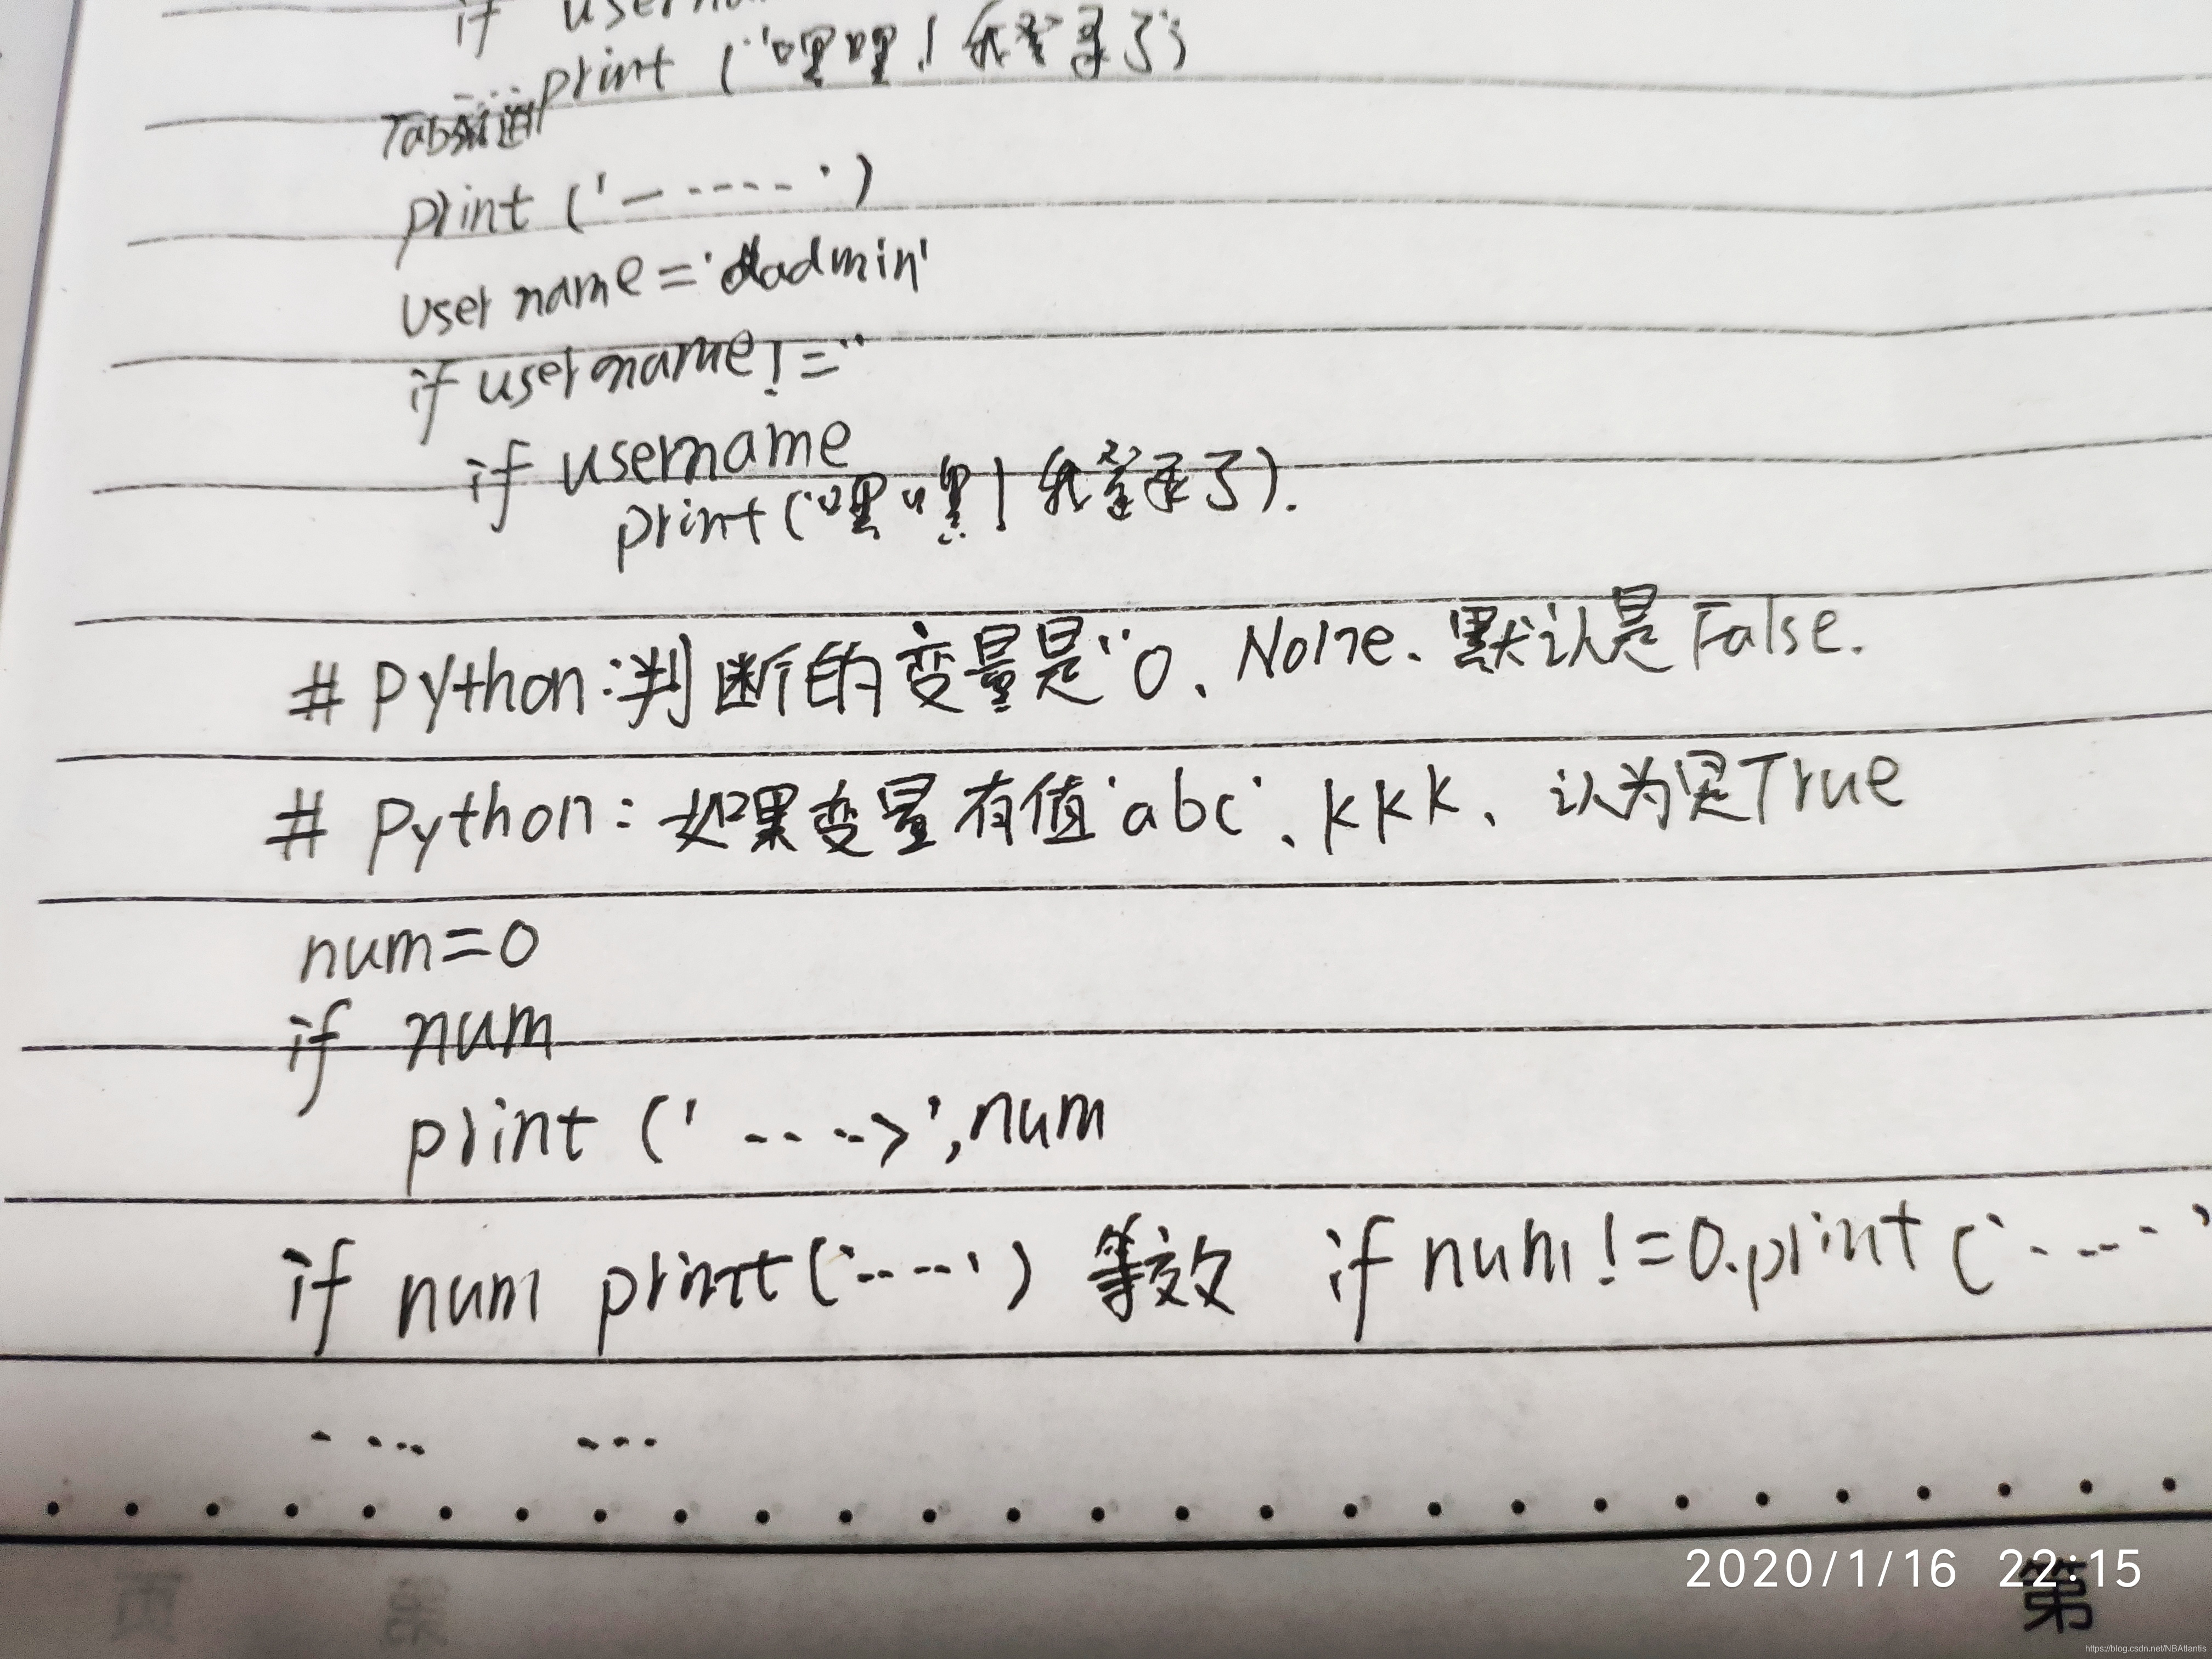 if userna
print ('嘿嘿！我登录了')
Tab缩进
print ('—-----')
username='admin'
if username!=''
if username
print('嘿嘿！我登录了').
# python:判断的变量是''0、None、默认是False.
# python: 如果变量有值'abc'、kkk、认为是True
num=0
if num
print ('---->',num
if num print('-----') 等效 if num!=0.print('-----'
---- ---
2020/1/16 22:15
第
https://blog.csdn.net/NBAtlantis